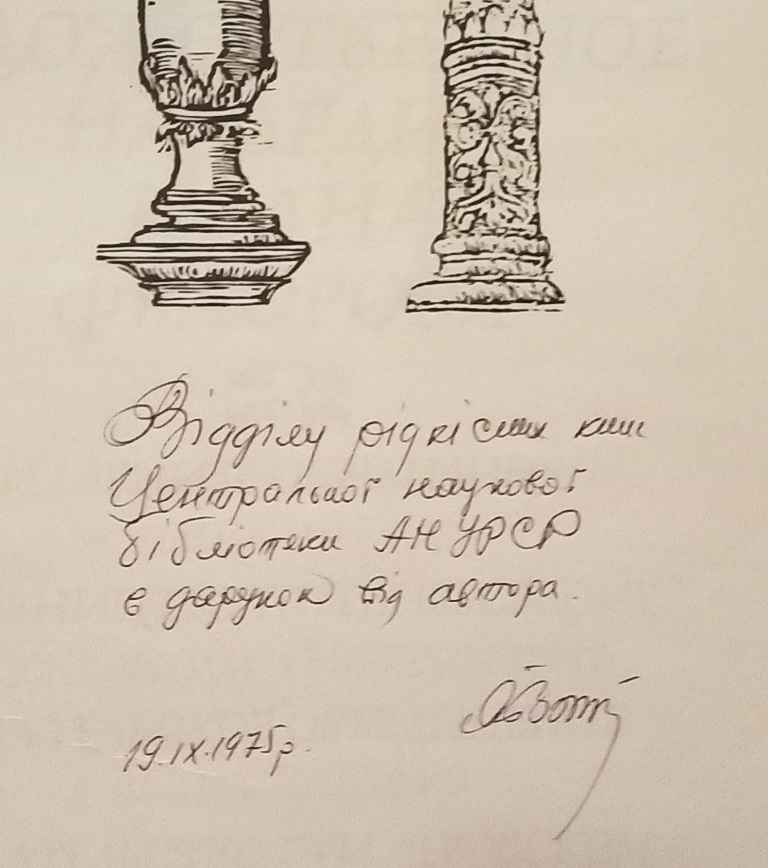 Відділу рідкісних книг
Центральної наукової
бібліотеки АН УРСР
в дарунок від автора.
19.IX.1975р.